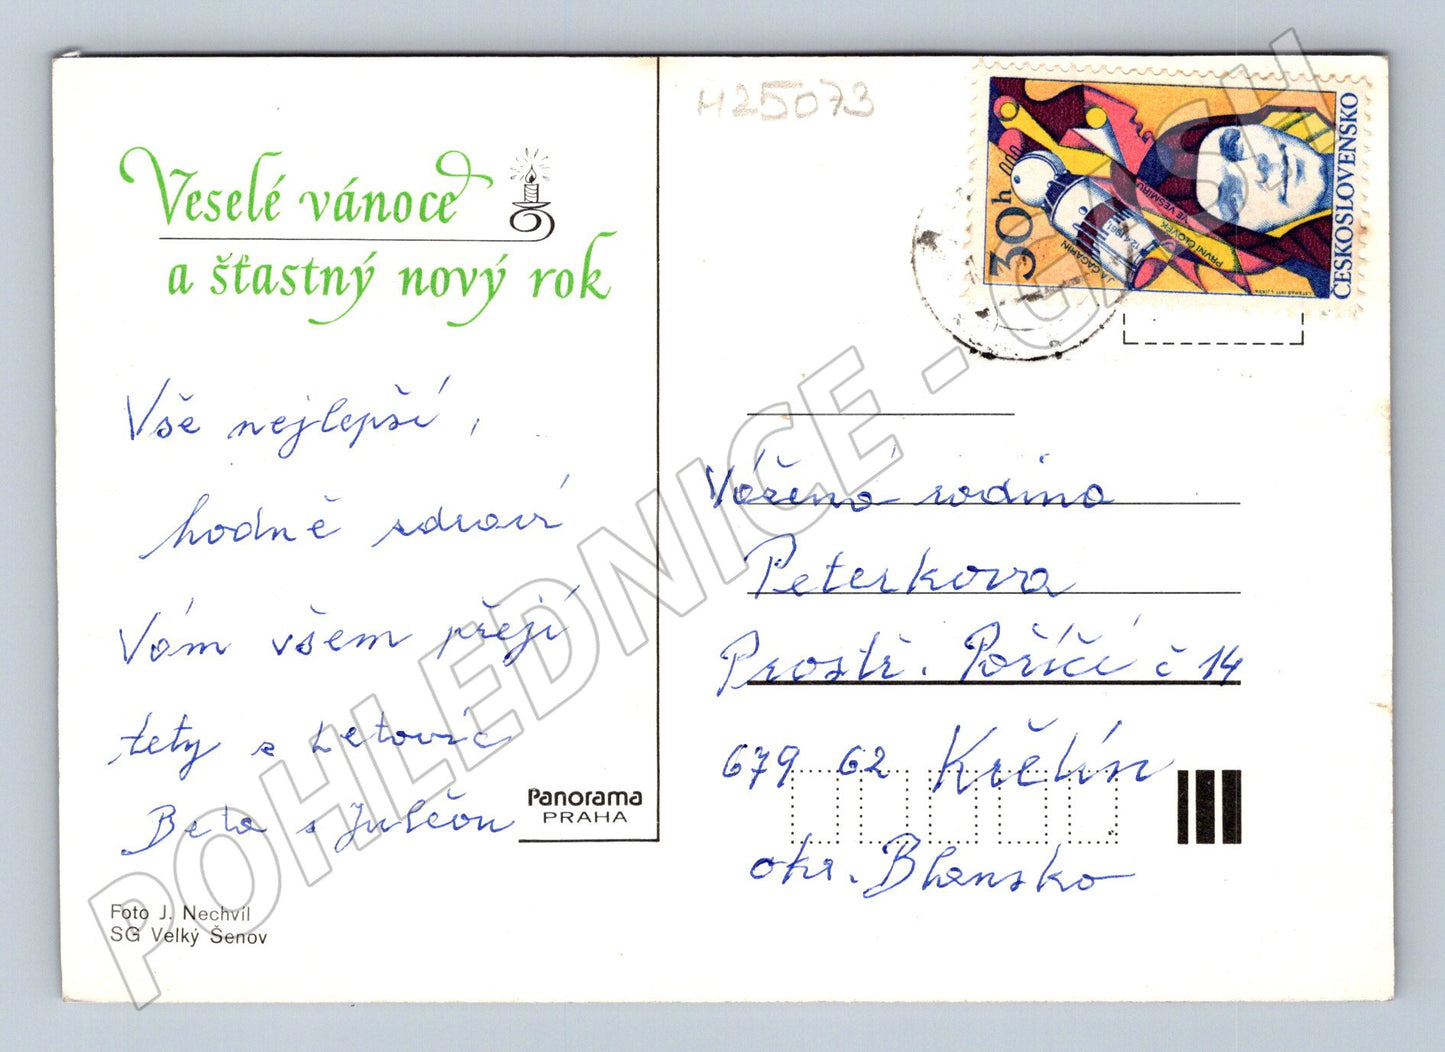 Veselé vánoce
a šťastný nový rok
Vše nejlepší,
hodně zdraví
Vám všem přejí
tety z Letovic
Beta s Julčou
Panorama
PRAHA
Foto J. Nechvíl
SG Velký Šenov
H25073
30h
J. A. GAGARIN
12.4.1961
PRVNÍ ČLOVĚK
VE VESMÍRU
ČESKOSLOVENSKO
Vážená rodina
Peterkova
Prostř. Poříčí č 14
679 62 Křetín
okr. Blansko
POHLEDNICE - GASH